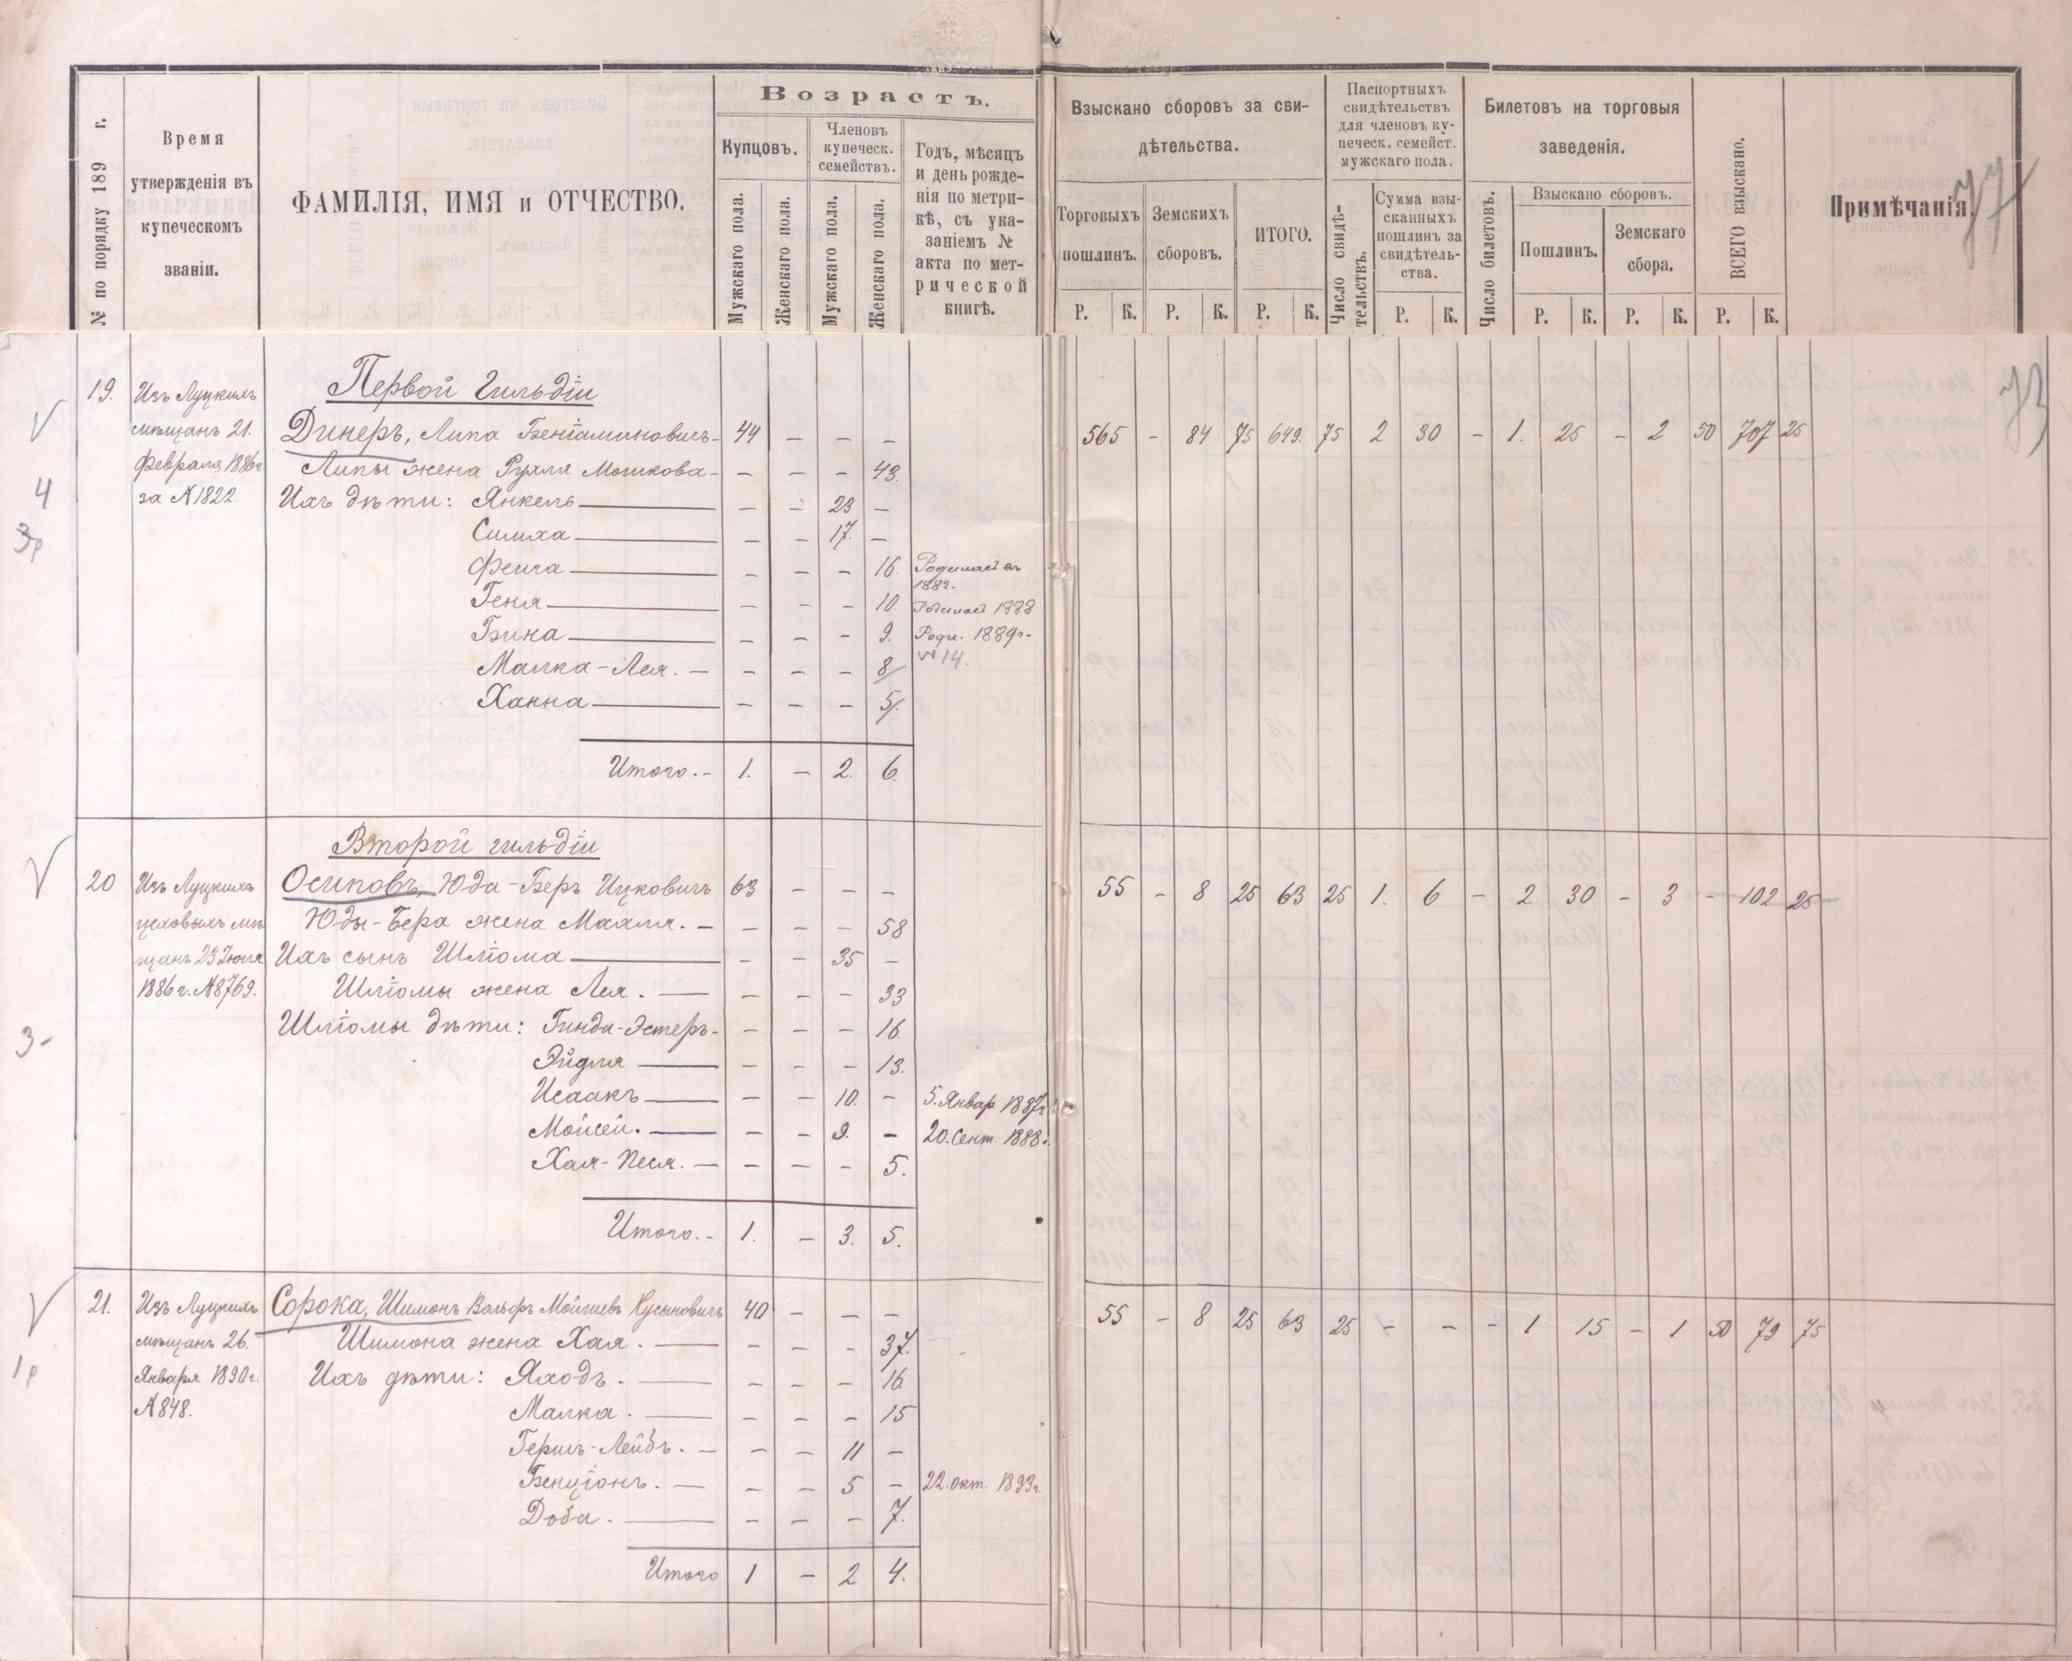 № по порядку 189 г.
Время
утвержденія въ
купеческомъ
званіи.
ФАМИЛІЯ, ИМЯ и ОТЧЕСТВО.
Возрастъ.
Купцовъ.
Мужскаго пола.
Женскаго пола.
Членовъ
купеческ.
семействъ.
Мужскаго пола.
Женскаго пола.
Годъ, мѣсяцъ
и день рожде-
нія по метри-
кѣ, съ ука-
заніемъ №
акта по мет-
рической
книгѣ.
Взыскано сборовъ за сви-
дѣтельства.
Торговыхъ
пошлинъ.
Р. К.
Земскихъ
сборовъ.
Р. К.
ИТОГО.
Р. К.
Паспортныхъ
свидѣтельствъ
для членовъ ку-
печеск. семейст.
мужскаго пола.
Число свидѣ-
тельствъ.
Сумма взы-
сканныхъ
пошлинъ за
свидѣтель-
ства.
Р. К.
Билетовъ на торговыя
заведенія.
Число билетовъ.
Взыскано сборовъ.
Пошлинъ.
Р. К.
Земскаго
сбора.
Р. К.
ВСЕГО взыскано.
Р. К.
Примѣчанія.
77
73
Первой Гильдіи
19. Изъ Луцкихъ
мѣщанъ 21.
Февраля 1886 г.
за №1822
4
3р
Динеръ, Липа Бенiаминовичъ - 44 — — — 565 - 84 75 649. 75 2 30 - 1. 25 - 2 50 707 25
Липы жена Рухля Мошкова - — — — 43.
Ихъ дѣти: Янкель — — 23 —
Симха — — 17. —
Фейга — — — 16. Родилась въ
1882.
Геня — — — 10. Родилась 1888
Бина — — — 9. Роди. 1889 г.
№ 14.
Малка-Лея. — — — 8
Ханна — — — 5.
Итого. - 1. — 2. 6.
Второй гильдіи
20 Изъ Луцкихъ
цеховыхъ мѣ
щанъ 23 Іюля
1886 г. №8769.
3-
Осиповъ, Юда-Беръ Ицковичъ 63 — — — 55 - 8 25 63 25 1. 6 - 2 30 - 3 - 102 25
Юды-Бера жена Махля. — — — — 58
Ихъ сынъ Шліома — — 35 —
Шліомы жена Лея. — — — — 33
Шліомы дѣти: Гинда-Эстеръ - — — — 16
Эйдля — — — 13.
Исаакъ — — 10. - 5. Январ 1887 г.
Мойсей. — — 9. - 20. Сент. 1888 г.
Хая-Песя. — — — 5.
Итого. - 1. - 3. 5.
21. Изъ Луцкихъ
мѣщанъ 26.
Января 1890 г.
№848.
1р
Сорока, Шимонъ Вольфъ 40 — — — 55 - 8 25 63 25 - - - 1 15 - 1 50 79 75
Шимона жена Хая. — — — — 37.
Ихъ дѣти: Яходъ. — — — — 16
Малка. — — — — 15
Гершъ-Лейбъ. — — — 11 —
Бенціонъ. — — — 5 — 22. окт. 1893 г.
Доба. — — — — 7.
Итого 1 - 2 4.